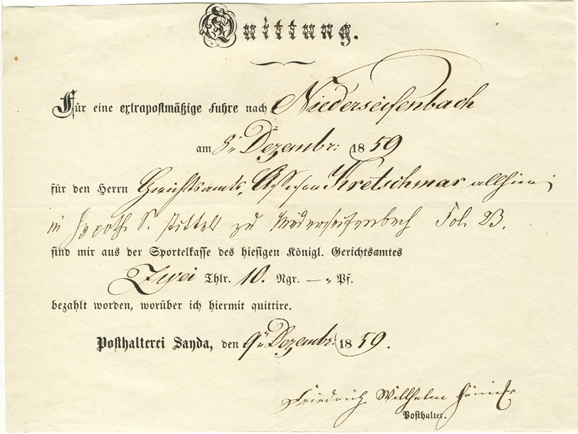 Quittung.
Für eine extrapostmäßige Fuhre nach Niederseifenbach
am 8r Dezembr: 1859
für den Herrn Gerichtsamts Assessor Kretschmar allhier;
in Hypoth. S. zu Niederseifenbach Fol. 23.
sind mir aus der Sportelkasse des hiesigen Königl. Gerichtsamtes
Zwei Thlr. 10. Ngr. — „ Pf.
bezahlt worden, worüber ich hiermit quittire.
Posthalterei Sayda, den 9r Dezembr: 1859.
Friedrich Willhelm
Posthalter.